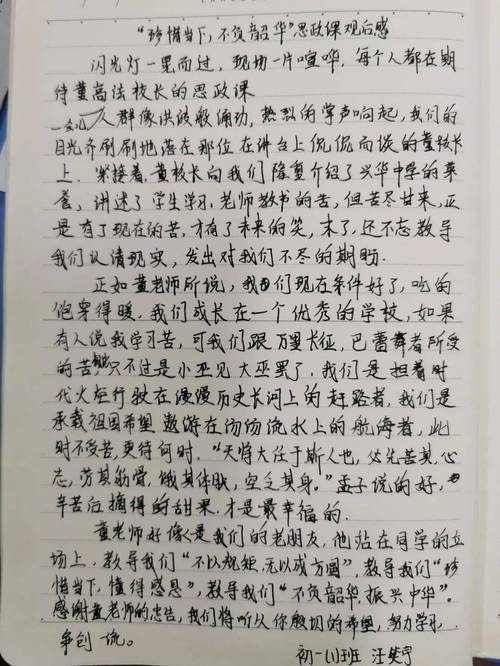 “珍惜当下,不负韶华”思政课观后感
闪光灯一晃而过,现场一片喧哗,每个人都在期
待董高法校长的思政课
一会儿人群像洪波般涌动,热烈的掌声响起,我们的
目光齐刷刷地落在那位在讲台上侃侃而谈的董校长
上. 紧接着,董校长向我们隆重介绍了兴华中学的荣
誉,讲述了学生学习,老师教书的苦,但苦尽甘来,正
是有了现在的苦,才有了未来的笑,末了,还不忘教导
我们认清现实,发出对我们不尽的期盼.
正如董老师所说,我们现在条件好了,吃的
饱穿得暖.我们成长在一个优秀的学校,如果
有人说我学习苦,可我们跟万里长征,巴蕾舞者所受
的苦相比只不过是小巫见大巫罢了.我们是担着时
代火炬行驶在漫漫历史长河上的赶路者,我们是
承载祖国希望遨游在汤汤流水上的航海者,此
时不受苦,更待何时.“天将大任于斯人也,必先苦其心
志,劳其筋骨,饿其体肤,空乏其身。”孟子说的好,
辛苦后摘得的甜果,才是最幸福的.
董老师好像是我们的老朋友,他站在同学的立
场上,教导我们“不以规矩,无以成方圆”,教导我们“珍
惜当下,懂得感恩”,教导我们“不负韶华,振兴中华”.
感谢董老师的忠告,我们将听从你殷切的希望,努力学习
争创一流。
初一(1)班 汪